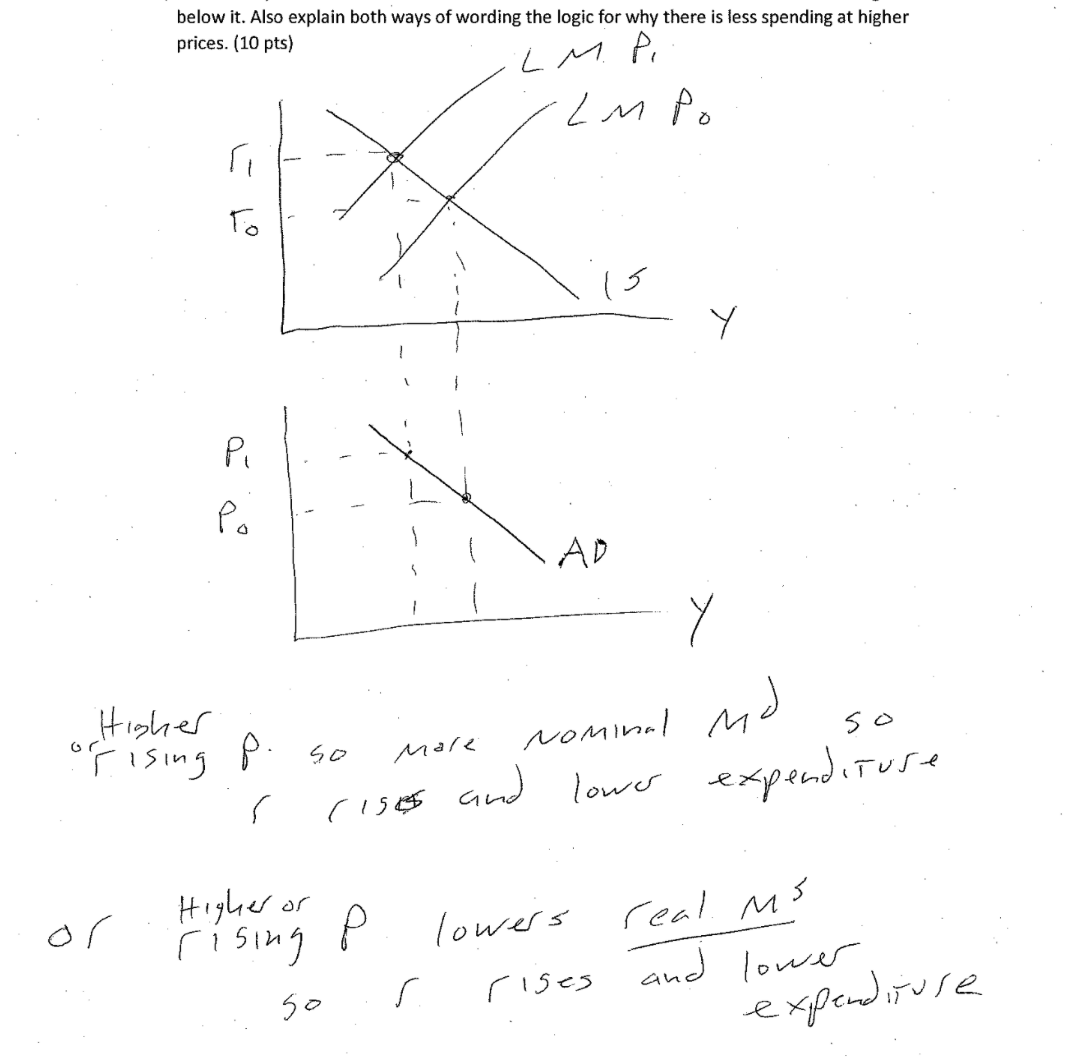 below it. Also explain both ways of wording the logic for why there is less spending at higher
prices. (10 pts)
LM P₁
LM P₀
r₁
r₀
IS
Y
P₁
P₀
AD
Y
Higher
or rising P. so more nominal Mᵈ so
r rises and lower expenditure
or Higher or
rising P lowers real Mˢ
so r rises and lower
expenditure